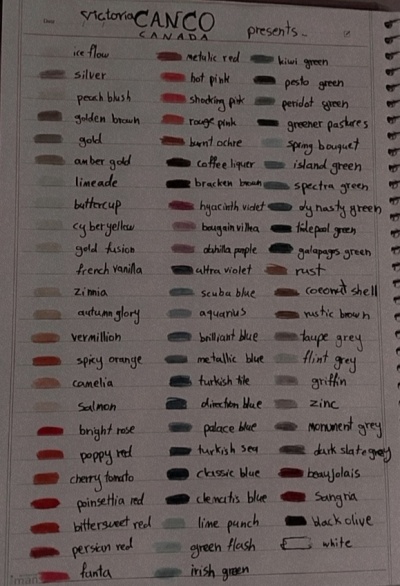 Victoria CANCO
CANADA
presents..
ice flow
silver
peach blush
golden brown
gold
amber gold
limeade
buttercup
cyber yellow
gold fusion
french vanilla
zinnia
autumn glory
vermillion
spicy orange
camelia
Salmon
bright rose
poppy red
cherry tomato
poinsettia red
bittersweet red
persian red
fanta
metalic red
hot pink
shocking pink
rouge pink
burnt ochre
coffee liquer
bracken brown
hyacinth violet
bougainvillea
purple
ultra violet
scuba blue
aquarius
brilliant blue
metallic blue
turkish tile
direction blue
palace blue
turkish sea
classic blue
clematis blue
lime punch
green flash
irish green
kiwi green
pesto green
peridot green
greener pastures
spring bouquet
island green
spectra green
dynasty green
tidepool green
galapagos green
rust
coconut shell
rustic brown
taupe grey
flint grey
griffin
zinc
monument grey
dark slate grey
beaujolais
Sangria
black olive
white